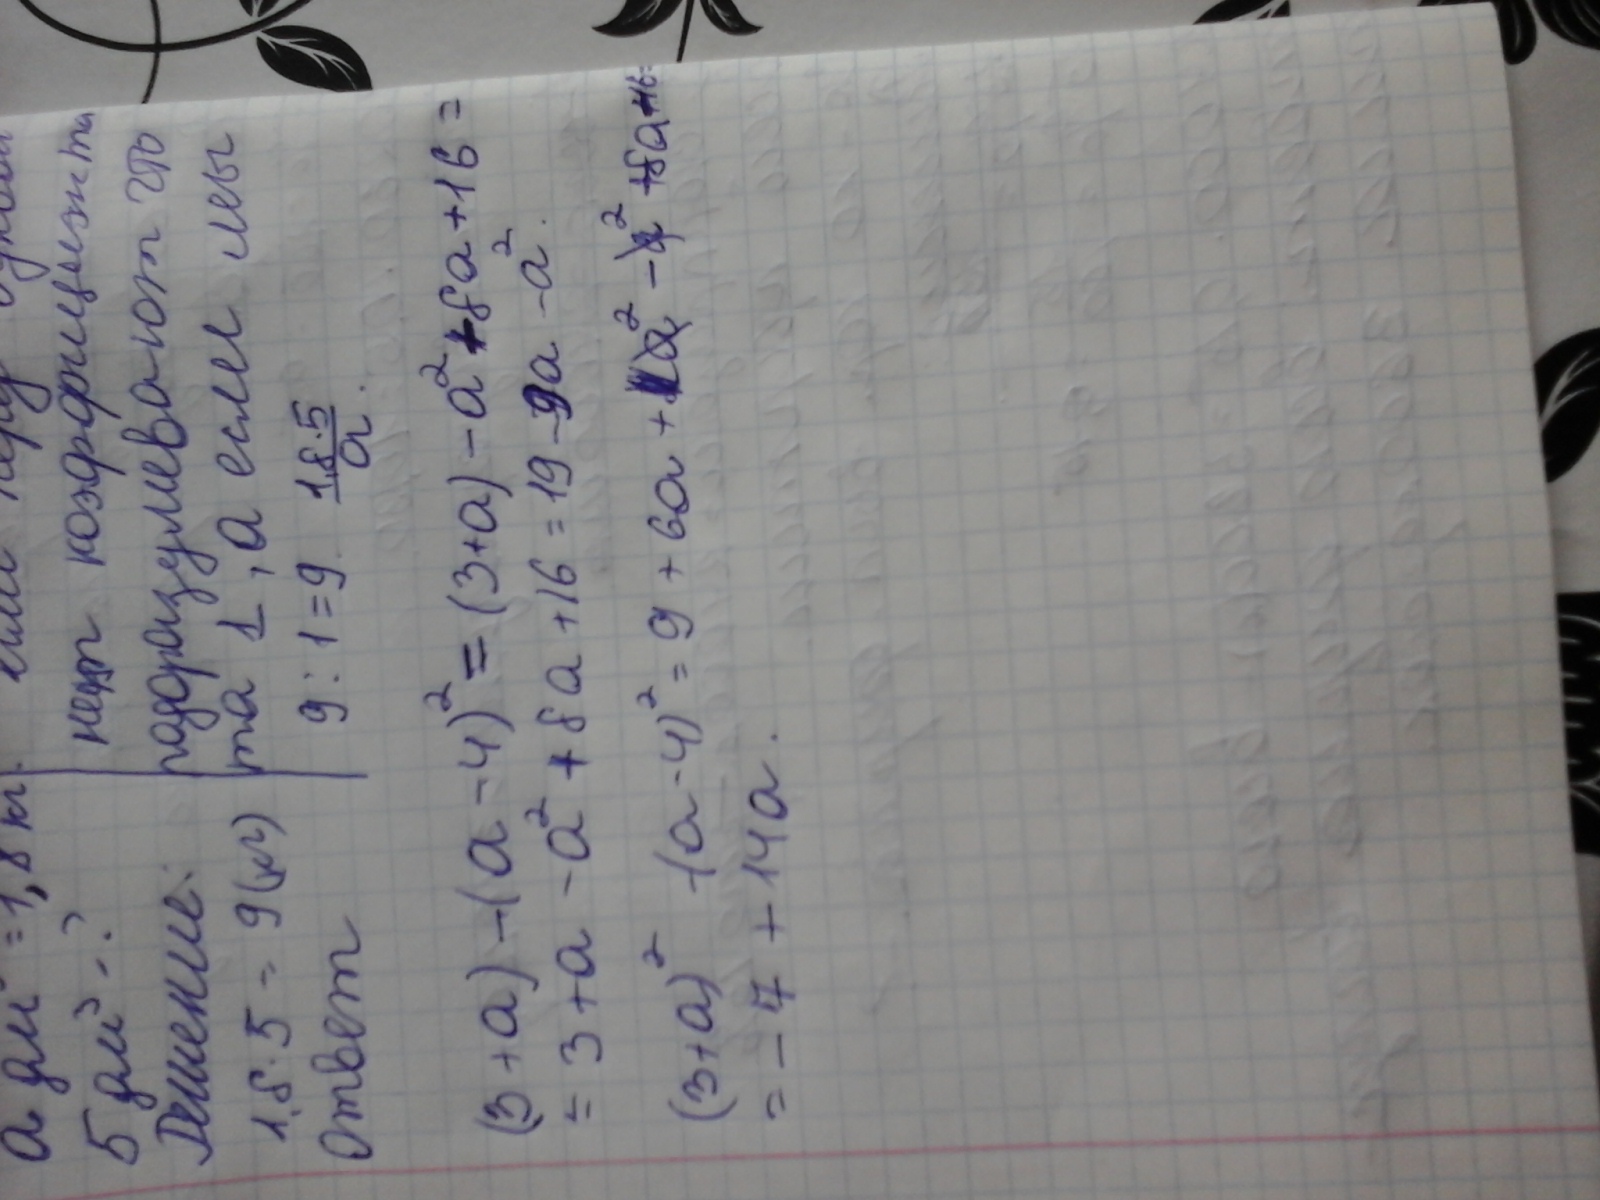 а дм³ = 1,8 кг.
5 дм³ - ?
Решение:
1,8 · 5 = 9 (кг)
Ответ
нет коэффициента
подразумевают что
та 1, а если мы
9 : 1 = 9 1,8·5/a.
(3+a) - (a - 4)² = (3+a) - a² + 8a + 16 =
= 3 + a - a² + 8a + 16 = 19 - 9a - a².
(3+a)² - (a - 4)² = 9 + 6a + a² - a² + 8a - 16 =
= - 7 + 14a.